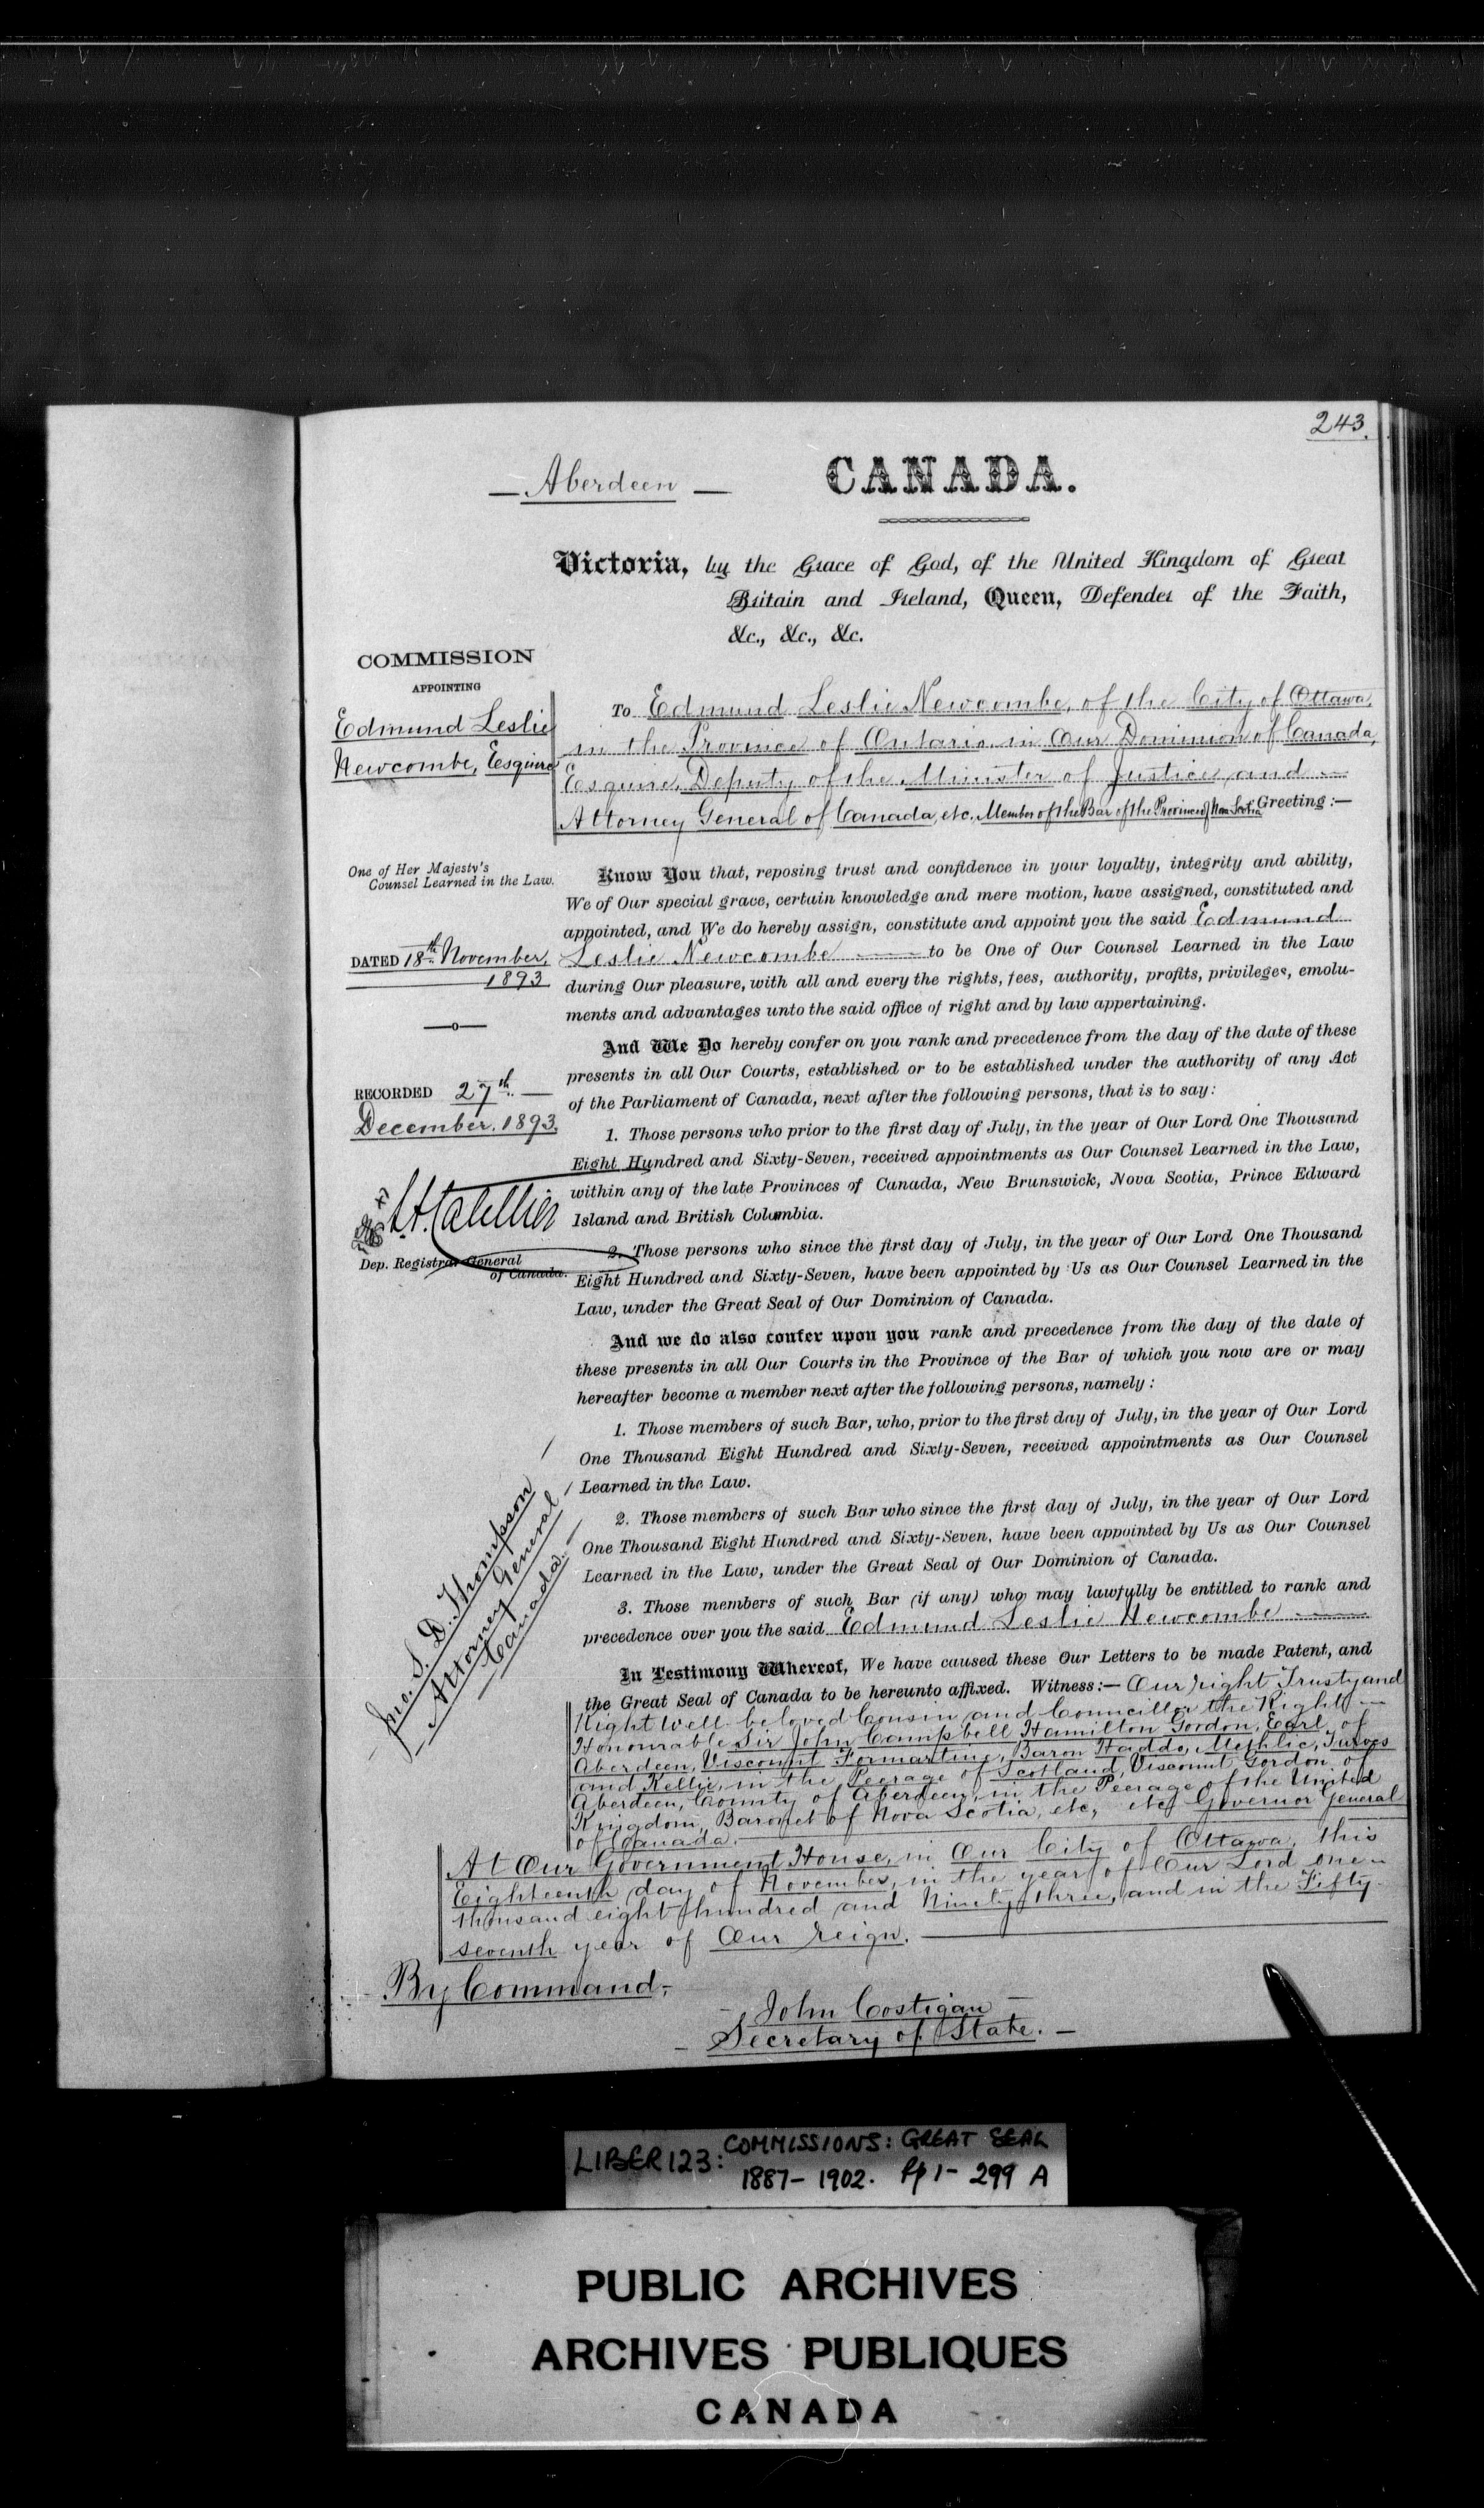 243.
Aberdeen
CANADA.
Victoria, by the Grace of God, of the United Kingdom of Great
Britain and Ireland, Queen, Defender of the Faith,
&c., &c., &c.
COMMISSION
APPOINTING
Edmund Leslie
Newcombe, Esquire
To Edmund Leslie Newcombe, of the City of Ottawa,
in the Province of Ontario in Our Dominion of Canada,
Esquire, Deputy of the Minister of Justice and
Attorney General of Canada, etc. Member of the Bar of the Province of Nova Scotia Greeting:—
One of Her Majesty's
Counsel Learned in the Law.
DATED 18th November,
1893
RECORDED 27th —
December, 1893.
Dep. Registrar General
of Canada.
Know You that, reposing trust and confidence in your loyalty, integrity and ability,
We of Our special grace, certain knowledge and mere motion, have assigned, constituted and
appointed, and We do hereby assign, constitute and appoint you the said Edmund
Leslie Newcombe — to be One of Our Counsel Learned in the Law
during Our pleasure, with all and every the rights, fees, authority, profits, privileges, emolu-
ments and advantages unto the said office of right and by law appertaining.
And We Do hereby confer on you rank and precedence from the day of the date of these
presents in all Our Courts, established or to be established under the authority of any Act
of the Parliament of Canada, next after the following persons, that is to say:
1. Those persons who prior to the first day of July, in the year of Our Lord One Thousand
Eight Hundred and Sixty-Seven, received appointments as Our Counsel Learned in the Law,
within any of the late Provinces of Canada, New Brunswick, Nova Scotia, Prince Edward
Island and British Columbia.
2. Those persons who since the first day of July, in the year of Our Lord One Thousand
Eight Hundred and Sixty-Seven, have been appointed by Us as Our Counsel Learned in the
Law, under the Great Seal of Our Dominion of Canada.
And we do also confer upon you rank and precedence from the day of the date of
these presents in all Our Courts in the Province of the Bar of which you now are or may
hereafter become a member next after the following persons, namely:
1. Those members of such Bar, who, prior to the first day of July, in the year of Our Lord
One Thousand Eight Hundred and Sixty-Seven, received appointments as Our Counsel
Learned in the Law.
2. Those members of such Bar who since the first day of July, in the year of Our Lord
One Thousand Eight Hundred and Sixty-Seven, have been appointed by Us as Our Counsel
Learned in the Law, under the Great Seal of Our Dominion of Canada.
3. Those members of such Bar (if any) who may lawfully be entitled to rank and
precedence over you the said Edmund Leslie Newcombe —
Jno. S. D. Thompson
Attorney General
Canada.
In Testimony Whereof, We have caused these Our Letters to be made Patent, and
the Great Seal of Canada to be hereunto affixed. Witness:— Our Right Trusty and
Right Well-beloved Cousin and Councillor the Right
Honourable Sir John Campbell Hamilton Gordon, Earl of
Aberdeen, Viscount Formartine, Baron Haddo, Methlic, Tarves
and Kellie, in the Peerage of Scotland, Viscount Gordon of
Aberdeen, County of Aberdeen, in the Peerage of the United
Kingdom, Baronet of Nova Scotia, etc, etc, Governor General
of Canada.
At Our Government House, in Our City of Ottawa, this
Eighteenth day of November, in the year of Our Lord one
thousand eight hundred and Ninety three, and in the Fifty
seventh year of Our Reign.
By Command,
John Costigan
Secretary of State.
LIBER 123: COMMISSIONS: GREAT SEAL
1887-1902. Pp 1-299 A
PUBLIC ARCHIVES
ARCHIVES PUBLIQUES
CANADA